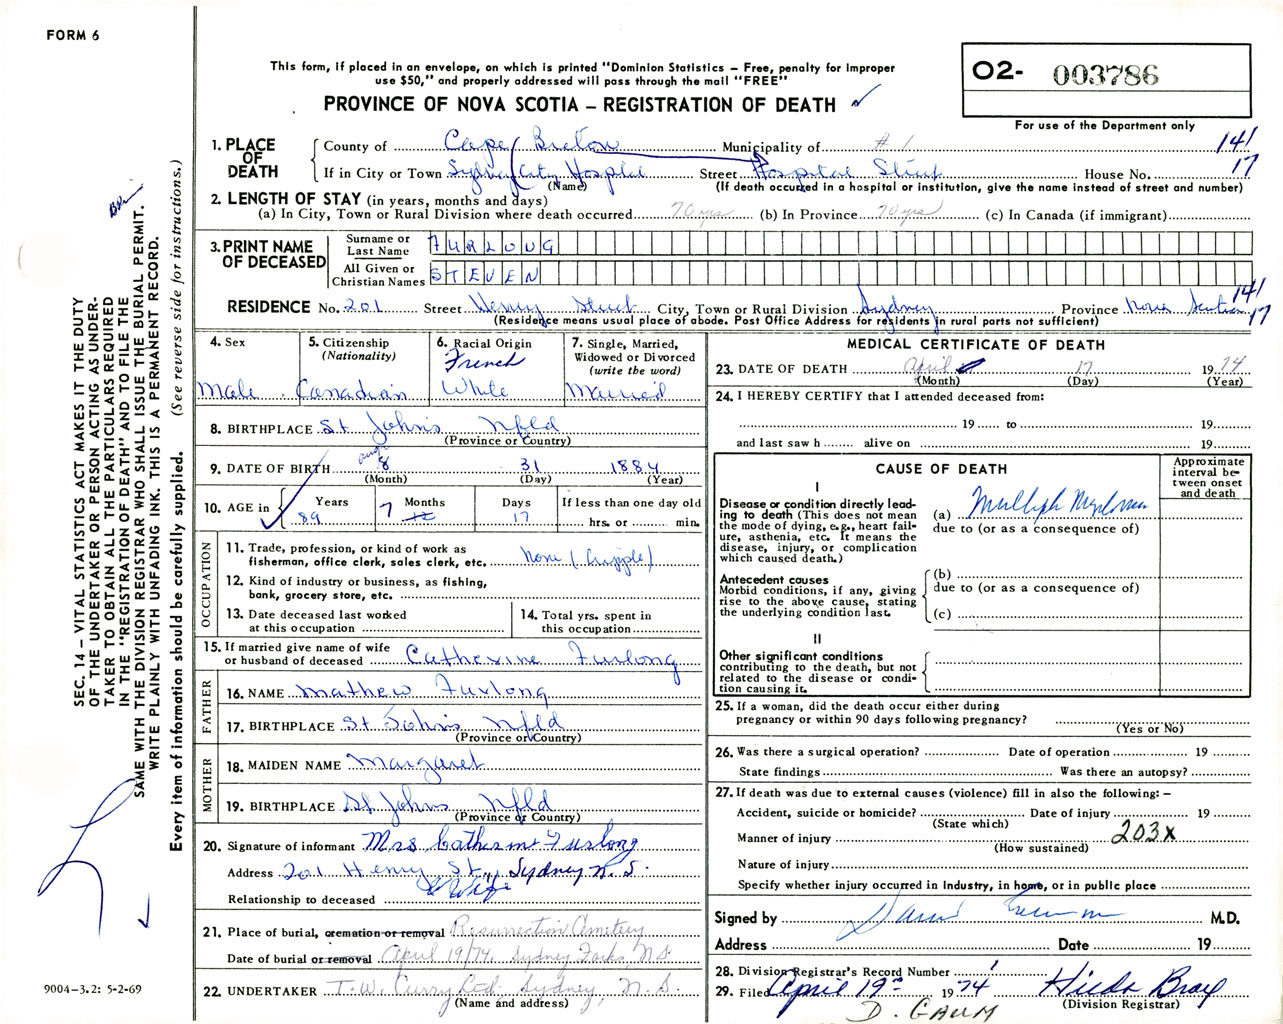 FORM 6
This form, if placed in an envelope, on which is printed "Dominion Statistics – Free, penalty for improper
use $50," and properly addressed will pass through the mail "FREE"
PROVINCE OF NOVA SCOTIA – REGISTRATION OF DEATH ✓
02- 003786
For use of the Department only
1. PLACE OF DEATH
County of Cape Breton Municipality of # 1 141
If in City or Town Sydney City Hospital Street Hospital Street House No. 17
(Name) (If death occurred in a hospital or institution, give the name instead of street and number)
2. LENGTH OF STAY (in years, months and days)
(a) In City, Town or Rural Division where death occurred 70 yrs (b) In Province 70 yrs (c) In Canada (if immigrant)
3. PRINT NAME OF DECEASED
Surname or Last Name FURLOUG
All Given or Christian Names STEVEN
RESIDENCE No. 201 Street Henry Street City, Town or Rural Division Sydney Province Nova Scotia 141 17
(Residence means usual place of abode. Post Office Address for residents in rural parts not sufficient)
4. Sex Male
5. Citizenship (Nationality) Canadian
6. Racial Origin French White
7. Single, Married, Widowed or Divorced (write the word) Married
8. BIRTHPLACE St John's Nfld
(Province or Country)
9. DATE OF BIRTH Aug 8 31 1884
(Month) (Day) (Year)
10. AGE in Years 89 Months 7 12 Days 17 If less than one day old hrs. or min.
OCCUPATION
11. Trade, profession, or kind of work as fisherman, office clerk, sales clerk, etc. None (Cripple)
12. Kind of industry or business, as fishing, bank, grocery store, etc.
13. Date deceased last worked at this occupation
14. Total yrs. spent in this occupation
15. If married give name of wife or husband of deceased Catherine Furlong
FATHER
16. NAME Mathew Furlong
17. BIRTHPLACE St John's Nfld
(Province or Country)
MOTHER
18. MAIDEN NAME Margaret
19. BIRTHPLACE St Johns Nfld
(Province or Country)
20. Signature of informant Mrs Catherine Furlong
Address 201 Henry St., Sydney N. S.
Relationship to deceased Wife
21. Place of burial, cremation or removal Resurrection Cemetery
Date of burial or removal April 19/74. Sydney Forks, N.S.
22. UNDERTAKER T. W. Curry Ltd. Sydney, N. S.
(Name and address)
MEDICAL CERTIFICATE OF DEATH
23. DATE OF DEATH April 17 1974
(Month) (Day) (Year)
24. I HEREBY CERTIFY that I attended deceased from:
19 to 19
and last saw h alive on 19
CAUSE OF DEATH
Approximate interval between onset and death
I
Disease or condition directly leading to death (This does not mean the mode of dying, e.g., heart failure, asthenia, etc. It means the disease, injury, or complication which caused death.)
(a) Multiple Myeloma
due to (or as a consequence of)
Antecedent causes
Morbid conditions, if any, giving rise to the above cause, stating the underlying condition last.
(b)
due to (or as a consequence of)
(c)
II
Other significant conditions
contributing to the death, but not related to the disease or condition causing it.
25. If a woman, did the death occur either during pregnancy or within 90 days following pregnancy?
(Yes or No)
26. Was there a surgical operation? Date of operation 19
State findings Was there an autopsy?
27. If death was due to external causes (violence) fill in also the following: –
Accident, suicide or homicide? Date of injury 19
(State which)
Manner of injury 203x
(How sustained)
Nature of injury
Specify whether injury occurred in Industry, in home, or in public place
Signed by M.D.
Address Date 19
28. Division Registrar's Record Number 1
29. Filed April 19 1974 Hilda Bray
(Division Registrar)
D. GAUM
SEC. 14 – VITAL STATISTICS ACT MAKES IT THE DUTY
OF THE UNDERTAKER OR PERSON ACTING AS UNDER-
TAKER TO OBTAIN ALL THE PARTICULARS REQUIRED
IN THE "REGISTRATION OF DEATH" AND TO FILE THE
SAME WITH THE DIVISION REGISTRAR WHO SHALL ISSUE THE BURIAL PERMIT.
WRITE PLAINLY WITH UNFADING INK. THIS IS A PERMANENT RECORD.
Every item of information should be carefully supplied. (See reverse side for instructions.)
9004-3.2: 5-2-69